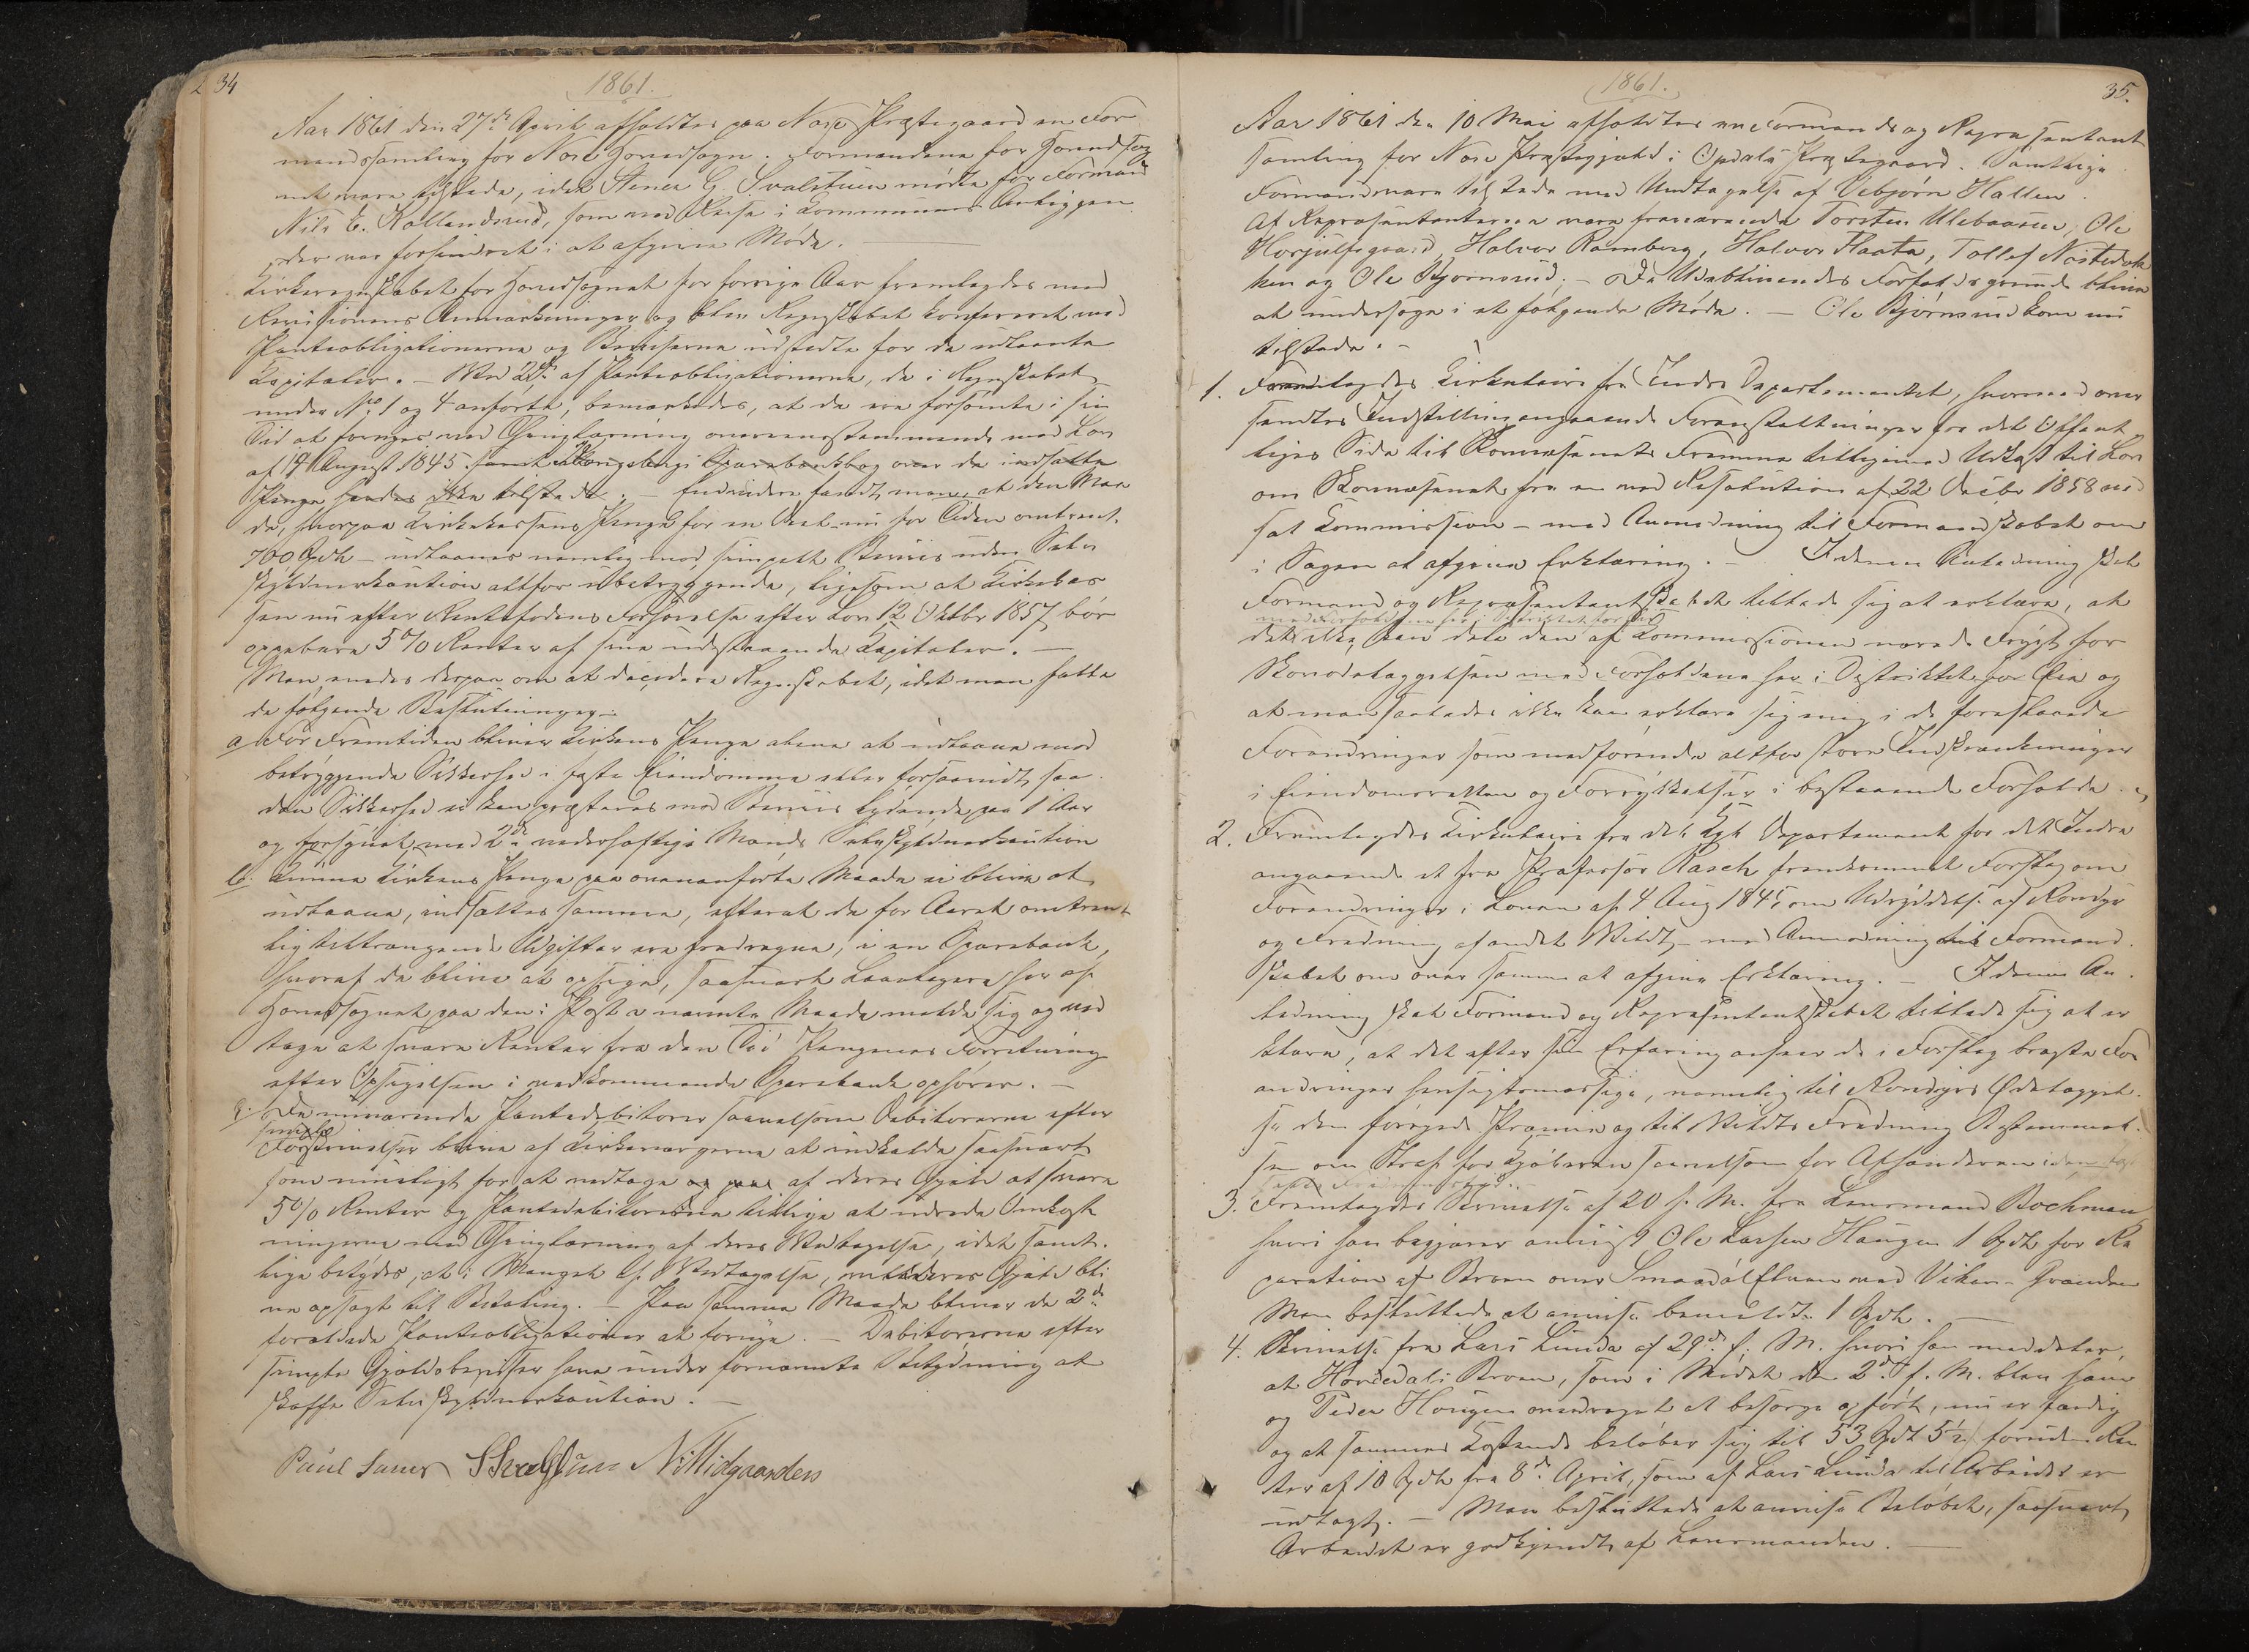 34
1861.
Aar 1861 den 27de April afholdtes paa Nore Præstegaard en For
mandssamling for Nore Hovedsogn. Formændene for Hovedsog
net vare tilstede, idet Stener G. Svalstuen mødte for Formand
Nils E. Rollandsrud, som ved Reise i Kommunens Anliggen
der var forhindret i at afgive Møde.
Kirkeregnskabet for Hovedsognet for forrige Aar fremlagdes med
Revisionens Anmærkninger og blev Regnskabet konfereret med
Panteobligationerne og Beviserne udstedte for de udlaante
Kapitaler. – Ved 2de af Panteobligationerne, de i Regnskabet
under No 1 og 4 anførte, bemærkedes, at de ere forsømte i sin
Tid at fornyes ved Thinglæsning overensstemmende med Lov
af 14 August 1845 samt Kongsbergs Sparebanksbog over de indsatte
Penge havdes ikke tilstede. – Endvidere fandt man, at den Maa
de, hvorpaa Kirkekassens Penge for en Deel – nu for Tiden omtrent
700 Spdlr – udlaanes nemlig mod simpelt Beviis uden Selv
skyldnerkaution altfor ubetryggende, ligesom at Kirkekas
sen nu efter Rentefodens Forhøielse efter Lov 12 Oktbr 1857 bør
oppebære 5% Renter af sine udestaaende Kapitaler. –
Man enedes derpaa om at decidere Regnskabet, idet man fatte
de følgende Beslutninger:
a For Fremtiden bliver Kirkens Penge alene at udlaane mod
betryggende Sikkerhed i faste Eiendomme eller forsaavidt saa
dan Sikkerhed ei kan præsteres mod Beviis lydende paa 1 Aar
og forsynet med 2de vederhæftige Mænds Selvskyldnerkaution
b. Kunne Kirkens Penge paa ovenanførte Maade ei blive at
udlaane, indsættes samme, efterat de for Aaret omtrent
lig tiltrængende Udgifter ere fradragne, i en Sparebank,
hvoraf de blive at opsige, saasnart Laantagere her af
Hovedsognet paa den i Post a nævnte Maade melde sig og ved
tage at svare Renter fra den Tid Pengenes Forretning
efter Opsigelsen i vedkommende Sparebank ophører. –
c. De nuværende Pantedebitorer saavelsom Debitorerne efter
simple
Forskrivelser blive af Kirkeværgerne at indkalde saasnart
som muligt for at vedtage og paa af deres Gjæld at svare
5% Renter og Pantedebitorerne tillige at udrede Omkost
ningerne med Thinglæsning af deres Vedtagelse, idet samt
lige betydes, at i Mangel af Vedtagelse, vil deres Gjæld bli
ve opsagt til Betaling. – Paa samme Maade bliver de 2de
forældede Panteobligationer at fornye. – Debitorerne efter
simple Gjældsbeviser have under fornævnte Betydning at
skaffe Selvskyldnerkaution. –
Paul Juver SSvalstuen NMidgaarden
35.
1861.
Aar 1861 den 10 Mai afholdtes en Formands og Repræsentant
samling for Nore Præstegjæld i Opdals Præstegaard. Samtlige
Formænd vare tilstede med Undtagelse af Vebjørn Hallen.
Af Repræsentanterne vare fremmødende Torsten Ulebaasen, Ole
Horjulsgaard, Halvor Ramberg, Halvor Flaata, Tollef Nøstedok
ken og Ole Bjørnsrud. – De Udeblivendes Forfaldsgrunde blive
at undersøge i et følgende Møde. – Ole Bjørnsrud kom nu
tilstede. –
1. Fremlagdes Cirkulaire fra Indre Departementet, hvormed over
sendtes Indstilling angaaende Foranstaltninger fra det Offent
liges Side til Skovvæsenets Fremme tilligemed Udkast til Lov
om Skovvæsenet fra en ved Resolution af 22 Decbr 1858 ned
sat Kommission – med Anmodning til Formandskabet om
i Sagen at afgive Erklæring. – I denne Anledning skal
Formand og Repræsentantskabet tillade sig at erklære, at
med Forholdene her i Distriktet for Øie
det ikke kan dele den af Kommissionen nærede Frygt for
Skovødelæggelsen med Forholdene her i Distriktet for Øie og
at man saaledes ikke kan erklære sig enig i de foreslaaede
Forandringer som medførende altfor store Indskrænkninger
i Eiendomsretten og Forrykkelser i bestaaende Forholde.
2. Fremlagdes Cirkulaire fra det Kgl. Departement for det Indre
angaaende et fra Professor Rasch fremkommet Forslag om
Forandringer i Loven af 4 Aug 1845 om Udryddelse af Rovdyr
og Fredning af andet Vildt – med Anmodning til Formand
skabet om over samme at afgive Erklæring. – I denne An
ledning skal Formand og Repræsentantskabet tillade sig at er
klære, at det efter sin Erfaring anseer de i Forslag bragte For
andringer hensigtsmæssige, nemlig til Rovdyrs Ødelæggel
se den forøgede Præmie og til Vildts Fredning Bestemmel
sen om Straf for Kjøberen saavelsom for Afhænderen
3. Fremlagdes Skrivelse af 20 f. M. fra Lensmand Bochman
hvori han begjærer anviist Ole Larsen Haugen 1 Spdlr for Re
paration af Broen over Smaadøl Elven ved Viken-Grænden
Man besluttede at anvise bemeldte 1 Spdlr. –
4. Skrivelse fra Lars Lunde af 29de f. M. hvori han meddeler,
at Hovdedals Broen, som i Mødet den 2de f. M. blev ham
og Peder Haugen overdraget at besørge opført, nu er færdig
og at sammes Kostende beløber sig til 53 Spdlr 5½ foruden Ren
ter af 10 Spdlr fra 8de April, som af Lars Lunde til Arbeidet er
udlagt. – Man besluttede at anvise Beløbet, saasnart
Arbeidet er godkjendt af Lensmanden. –